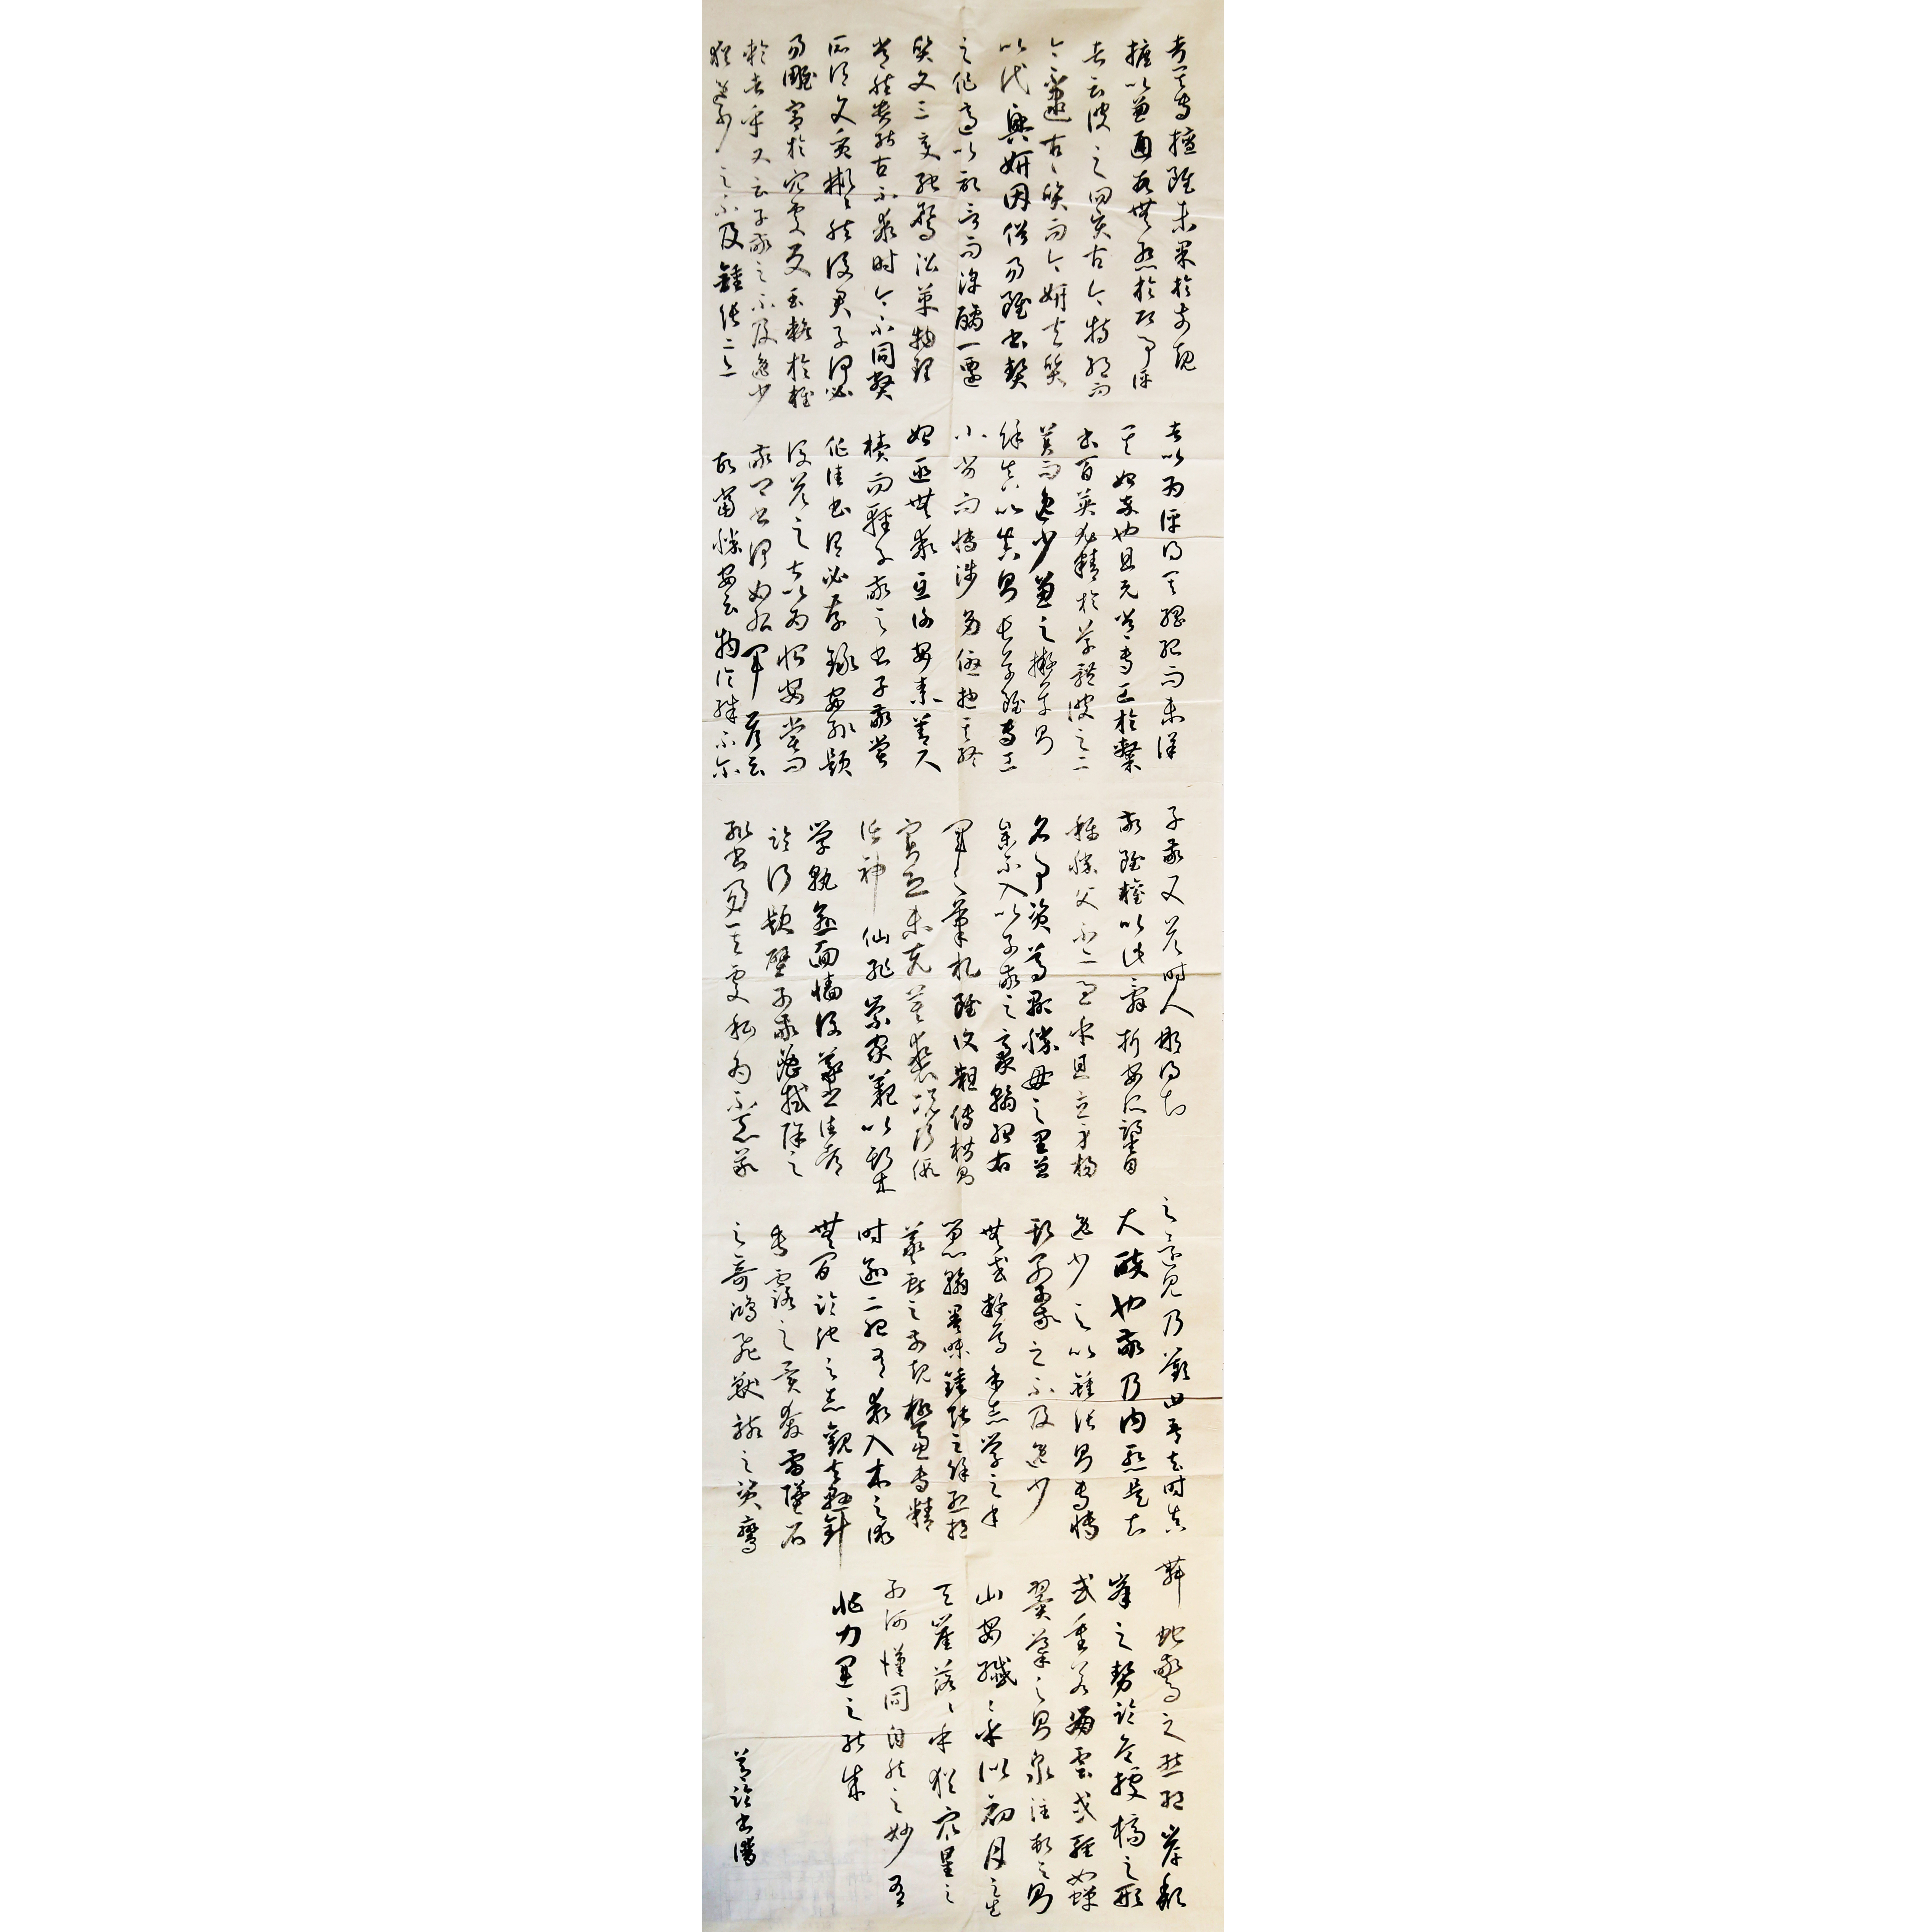 考其專擅雖未果於前規
摭以兼通故無慙於即事評
者云彼之四賢古今特絕而
今不逮古古質而今妍夫質
以代興妍因俗易雖書契
之作適以記言而淳醨一遷
質文三變馳騖沿革物理
常然貴能古不乖時今不同弊
所謂文質彬彬然後君子何必
易雕宮於穴處反玉輅於椎
輪者乎又云子敬之不及逸少
猶逸少之不及鍾張意
者以為評得其綱紀而未詳
其始卒也且元常專工於隸
書百英尤精於草體彼之二
美而逸少兼之擬草則
餘真比真則長草雖專工
小劣而博涉多優摠其終
始匪無乖互謝安素善尺
牘而輕子敬之書子敬嘗
作佳書謂必存錄安輒題
後答之甚以為恨安嘗問
敬卿書何如右軍答云
故當勝安云物論殊不爾
子敬又答時人那得知
敬雖權以此辭折安所鑒自
稱勝父不亦過乎且立身揚
名事資尊顯勝母之里曾
參不入以子敬之豪翰紹右
軍之筆札雖復粗傳楷則
實恐未克箕裘況乃假
託神仙恥崇家範以斯成
學孰愈面牆後羲之往都
臨行題壁子敬密拭除之
輒書易其處私為不惡羲
之還見乃歎曰吾去時真
大醉也敬乃內慙是知
逸少之比鍾張則專博
斯別子敬之不及逸少
無或疑焉余志學之年
留心翰墨味鍾張之餘烈挹
羲獻之前規極慮專精
時逾二紀有乖入木之術
無間臨池之志觀夫懸針
垂露之異奔雷墜石
之奇鴻飛獸駭之資鸞
舞蛇驚之態絕岸頹
峯之勢臨危據槁之形
或重若崩雲或輕如蟬
翼導之則泉注頓之則
山安纖纖乎似初月之出
天崖落落乎猶衆星之
列河漢同自然之妙有
非力運之能成
臨書譜